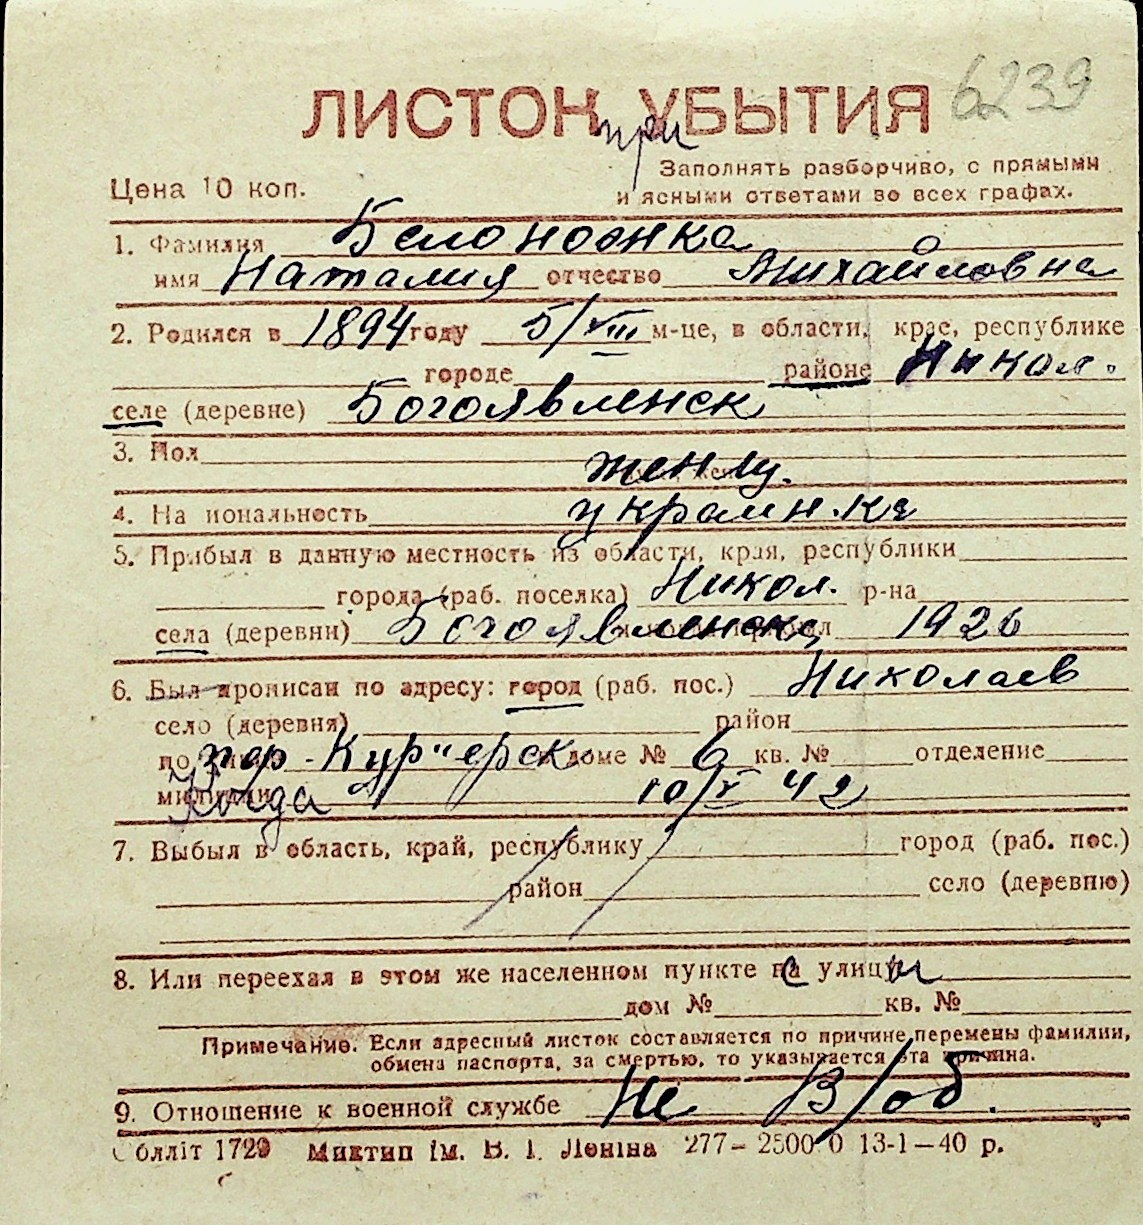 6239
ЛИСТОК УБЫТИЯ
при
Заполнять разборчиво, с прямыми
Цена 10 коп.
и ясными ответами во всех графах.
1. Фамилия Белоноенка
имя Наталия отчество Михайловна
2. Родился в 1894 году 5/VIII м-це, в области, крае, республике
городе районе Никол.
селе (деревне) Богоявленск
3. Пол
женщ.
4. Национальность украин.ка
5. Прибыл в данную местность из области, края, республики
города (раб. поселка) Никол. р-на
села (деревни) Богоявленска 1926
6. Был прописан по адресу: город (раб. пос.) Николаев
село (деревня) район
по пер. Курьерск. доме № 6 кв. № отделение
милиции Когда 10/V 42
7. Выбыл в область, край, республику город (раб. пос.)
район село (деревню)
8. Или переехал в этом же населенном пункте с улицы
дом № кв. №
Примечание. Если адресный листок составляется по причине перемены фамилии,
обмена паспорта, за смертью, то указывается эта причина.
9. Отношение к военной службе Не в/об.
Облліт 1729 Миктип ім. В. І. Леніна 277—25000 13-1—40 р.